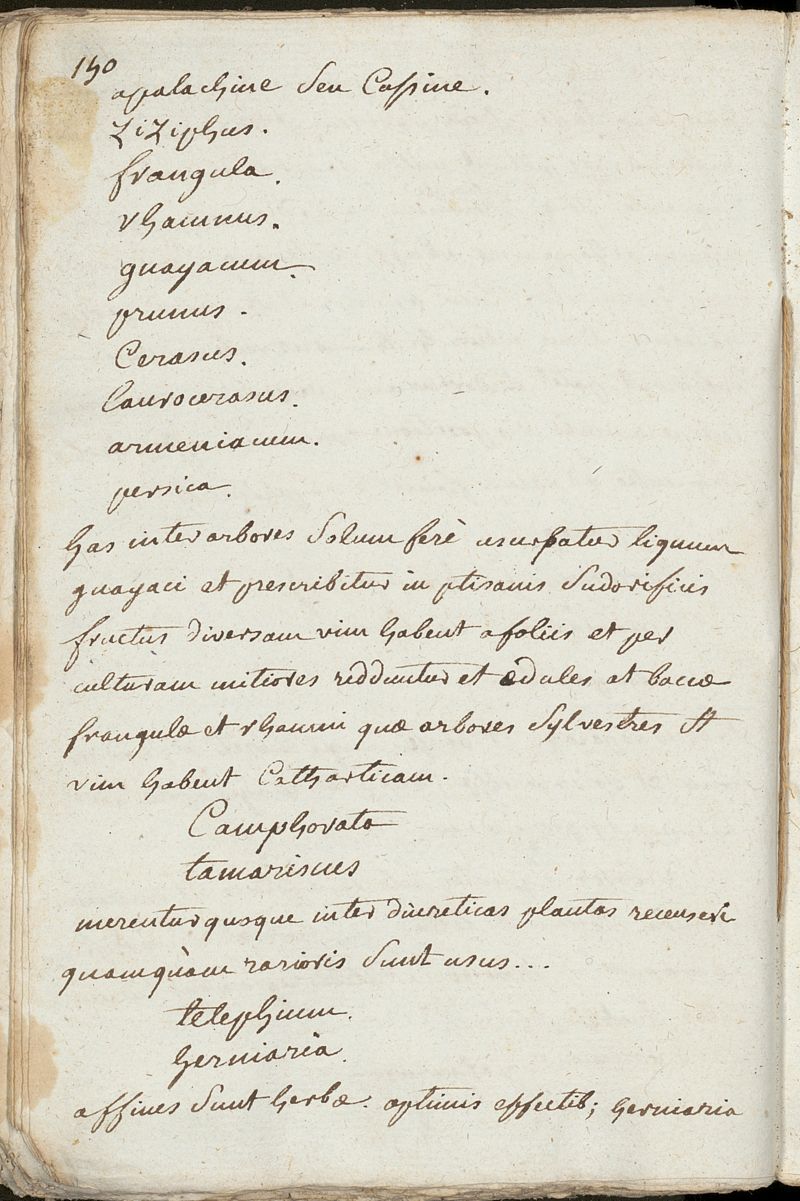 190
apalachine seu Cassine.
ziziphus.
frangula.
rhamnus.
guayacum.
prunus.
Cerasus.
laurocerasus.
armeniacum.
persica.
has inter arbores Solum ferè usurpatur lignum
guayaci et prescribitur in ptisanis Sudorificis
fructus diversam vim habent a foliis et per
culturam mitiores redduntur et ædules at baccæ
frangulæ et rhamni quæ arbores Sylvestres St
vim habent Catharticam.
Camphorata
tamariscus
merentur quoque inter diureticas plantas recenseri
quamquàm rarioris Sunt usus...
telephium.
herniaria.
affines Sunt herbæ. optimis effectib; herniaria